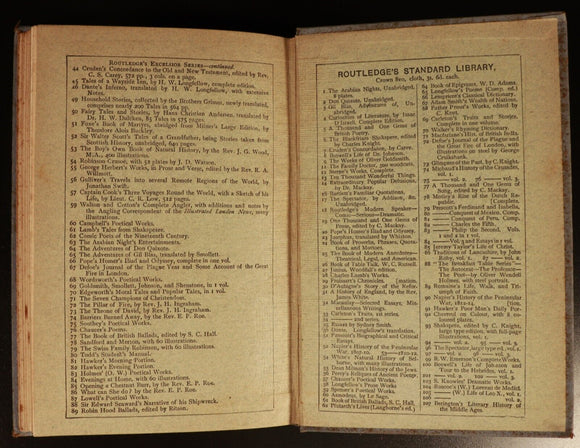 ROUTLEDGE'S EXCELSIOR SERIES—continued.
44 Cruden's Concordance to the Old and New Testament, edited by Rev.
C. S. Carey, 572 pp., 3 cols. on a page.
45 Tales of a Wayside Inn, by H. W. Longfellow, complete edition.
46 Dante's Inferno, translated by H. W. Longfellow, with extensive
notes.
49 Household Stories, collected by the Brothers Grimm, newly translated,
comprises nearly 200 Tales in 564 pp.
50 Fairy Tales and Stories, by Hans Christian Andersen, translated by
Dr. H. W. Dulcken, 85 Tales in 575 pages.
51 Foxe's Book of Martyrs, abridged from Milner's Large Edition, by
Theodore Alois Buckley.
52 Sir Walter Scott's Tales of a Grandfather, being Stories taken from
Scottish History, unabridged, 640 pages.
53 The Boy's Own Book of Natural History, by the Rev. J. G. Wood,
M.A., 400 illustrations.
54 Robinson Crusoe, with 52 plates by J. D. Watson.
55 George Herbert's Works, in Prose and Verse, edited by the Rev. R. A.
Willmott.
56 Gulliver's Travels into several Remote Regions of the World, by
Jonathan Swift.
57 Captain Cook's Three Voyages Round the World, with a Sketch of his
Life, by Lieut. C. R. Low, 512 pages.
59 Walton and Cotton's Complete Angler, with additions and notes by
the Angling Correspondent of the Illustrated London News, many
illustrations.
60 Campbell's Poetical Works.
61 Lamb's Tales from Shakespeare.
62 Comic Poets of the Nineteenth Century.
63 The Arabian Night's Entertainments.
64 The Adventures of Don Quixote.
65 The Adventures of Gil Blas, translated by Smollett.
66 Pope's Homer's Iliad and Odyssey, complete in one vol.
67 Defoe's Journal of the Plague Year and Some Account of the Great
Fire in London.
68 Wordsworth's Poetical Works.
69 Goldsmith, Smollett, Johnson, and Shenstone, in 1 vol.
70 Edgeworth's Moral Tales and Popular Tales, in 1 vol.
71 The Seven Champions of Christendom.
72 The Pillar of Fire, by Rev. J. H. Ingraham.
73 The Throne of David, by Rev. J. H. Ingraham.
74 Barriers Burned Away, by the Rev. E. P. Roe.
75 Southey's Poetical Works.
76 Chaucer's Poems.
77 The Book of British Ballads, edited by S. C. Hall.
78 Sandford and Merton, with 60 illustrations.
79 The Swiss Family Robinson, with 60 illustrations.
80 Todd's Student's Manual.
81 Hawker's Morning Portion.
82 Hawker's Evening Portion.
83 Holmes' (O. W.) Poetical Works.
84 Evenings at Home, with 60 illustrations.
85 Opening a Chestnut Burr, by the Rev. E. P. Roe.
86 What can She do? by the Rev. E. P. Roe.
87 Lowell's Poetical Works.
88 Sir Edward Seaward's Narrative of his Shipwreck.
89 Robin Hood Ballads, edited by Ritson.
ROUTLEDGE'S STANDARD LIBRARY,
Crown 8vo, cloth, 3s. 6d. each.
1 The Arabian Nights, Unabridged,
8 plates.
2 Don Quixote, Unabridged.
Gil Blas, Adventures of, Unabridged.
4 Curiosities of Literature, by Isaac
D'Israeli, Complete Edition.
5 A Thousand and One Gems of
British Poetry.
The Blackfriars Shakspere, edited
by Charles Knight.
Cruden's Concordance, by Carey.
Boswell's Life of Dr. Johnson.
The Works of Oliver Goldsmith.
The Family Doctor, 500 woodcuts.
Sterne's Works, Complete.
Ten Thousand Wonderful Things.
Extraordinary Popular Delusions,
by Dr. Mackay.
Bartlett's Familiar Quotations.
The Spectator, by Addison, &c.
Unabridged.
Routledge's Modern Speakers—
Comic—Serious—Dramatic.
One Thousand and One Gems of
Prose, edited by C. Mackay.
Pope's Homer's Iliad and Odyssey.
Josephus, translated by Whiston.
Book of Proverbs, Phrases, Quotations, and Mottoes.
The Book of Modern Anecdotes—
Theatrical, Legal, and American.
Book of Table Talk, W. C. Russell.
Junius, Woodfall's edition.
Charles Lamb's Works.
Froissart's Chronicles.
D'Aubigne's Story of the Reformation.
A History of England, by the Rev.
James White.
Macaulay—Selected Essays, Miscellaneous Writings.
Carleton's Traits, 1st series.
2nd series.
Essays by Sydney Smith.
Dante. Longfellow's translation.
Prescott's Biographical and Critical
Essays.
Napier's History of the Peninsular
War, 1807-10.
1810-12.
White's Natural History of Selborne, with many illustrations.
Dean Milman's History of the Jews.
Percy's Reliques of Ancient Poetry.
Chaucer's Poetical Works.
Longfellow's Prose Works.
Spenser's Poetical Works.
Asmodeus, by Le Sage.
Book of British Ballads, S. C. Hall.
Plutarch's Lives (Langhorne's ed.)
64 Book of Epigrams, W. D. Adams.
65 Longfellow's Poems (Comp. ed.)
66 Lempriere's Classical Dictionary.
67 Adam Smith's Wealth of Nations.
68 Father Prout's Works, edited by
C. Kent.
69 Carleton's Traits and Stories.
Complete in one volume.
70 Walker's Rhyming Dictionary.
71 Macfarlane's Hist. of British India.
72 Defoe's Journal of the Plague and
the Great Fire of London, with
illustrations on steel by George
Cruikshank.
73 Glimpses of the Past, by C. Knight.
74 Michaud's History of the Crusades,
vol. 1.
75 vol. 2.
76 vol. 3.
77 A Thousand and One Gems of
Song, edited by C. Mackay.
78 Motley's Rise of the Dutch Republic.
79 Prescott's Ferdinand and Isabella,
80 Conquest of Mexico. Comp.
81 Conquest of Peru. Comp.
82 Charles the Fifth.
83 Philip the Second. Vols.
1 and 2 in 1 vol.
84 Vol. 3 and Essays in 1 vol.
85 Jeremy Taylor's Life of Christ.
86 Traditions of Lancashire, by John
Roby, vol. 1. 87 vol. 2.
88 "The Breakfast Table Series"—
The Autocrat—The Professor—
The Poet—by Oliver Wendell
Holmes, with steel portrait.
89 Romaine's Life, Walk, and Triumph of Faith.
90 Napier's History of the Peninsular
War, 1812-14.
91 Hawker's Poor Man's Daily Portion.
92 Chevreul on Colour, with 8 coloured plates.
93 Shakspere, edited by C. Knight,
large type edition, with full-page
illustrations, vol. 1.
94 vol. 2. 95 vol. 3.
96 The Spectator, large type ed. vol. 1.
97 vol. 2. 98 vol. 3.
R. W. Emerson's Complete Works.
Boswell's Life of Johnson and
Tour to the Hebrides, vol. 1.
vol. 2. vol. 3.
S. Knowles' Dramatic Works.
Roscoe's (W.) Lorenzo de Medici.
(W.) Life of Leo X., vol. 1.
vol. 2.
107 Berington's Literary History of
the Middle Ages.